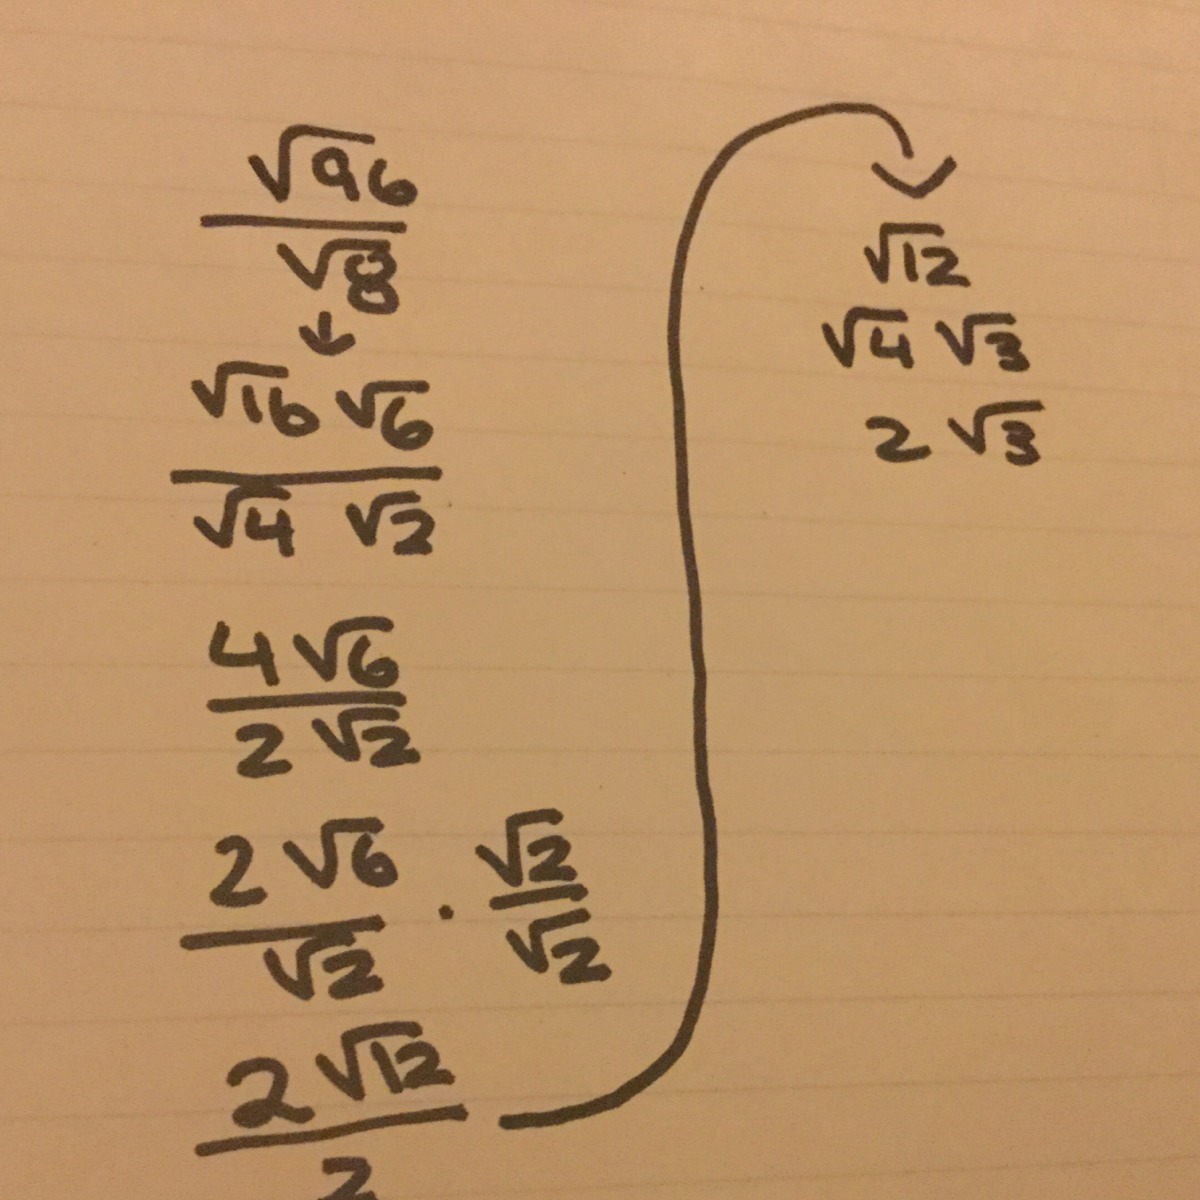 √96
√8
←
√16 √6
√4 √2
4 √6
2 √2
2 √6 · √2
√2 √2
2 √12
2
√12
√4 √3
2 √3